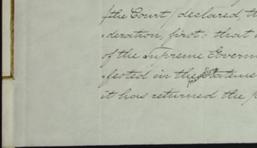 f the Court, declared, th
deration, first: that
of the Supreme Govern
fested in the Statue
it has returned the